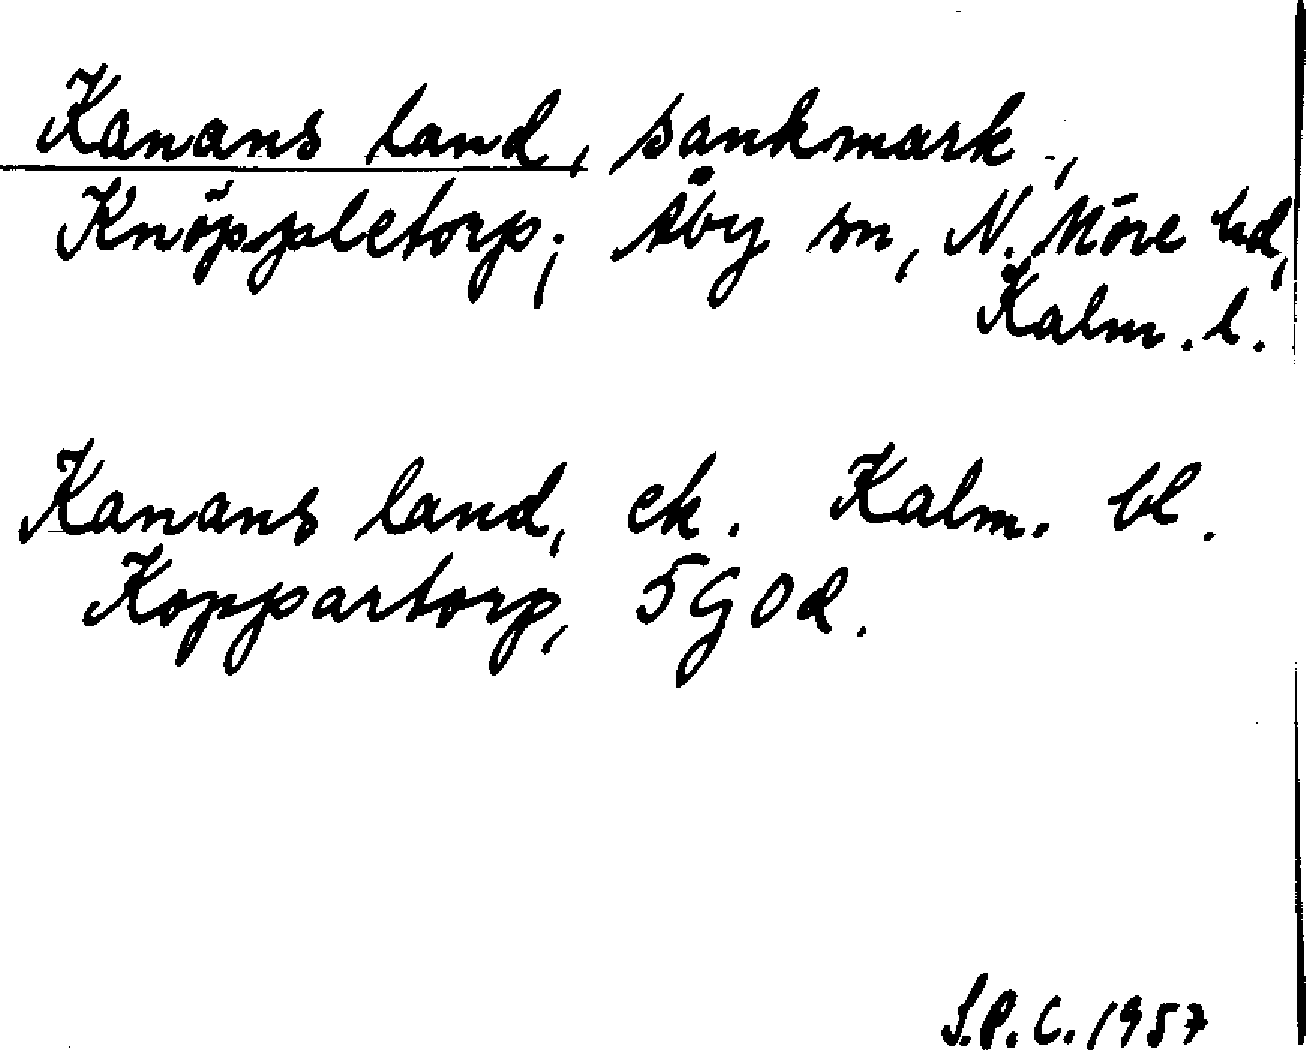 Kanans land, sankmark,
Knöppletorp; Åby sn, N. Möre hd,
Kalm. l.
Kanans land, ek. Kalm. bl.
Koppartorp, 5G0d.
S.P.C. 1957